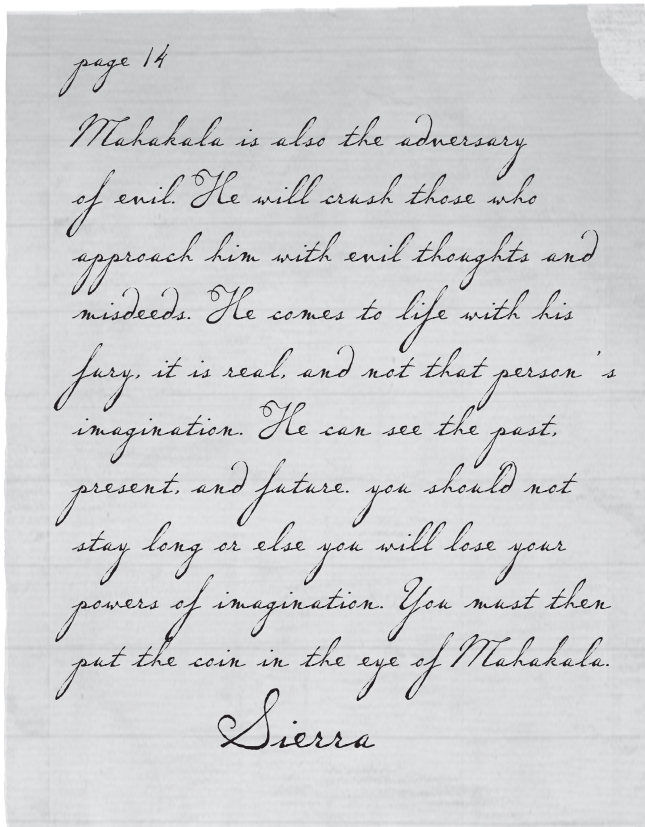 page 14
Mahakala is also the adversary
of evil. He will crush those who
approach him with evil thoughts and
misdeeds. He comes to life with his
fury, it is real, and not that person's
imagination. He can see the past,
present, and future. you should not
stay long or else you will lose your
powers of imagination. You must then
put the coin in the eye of Mahakala.
Sierra